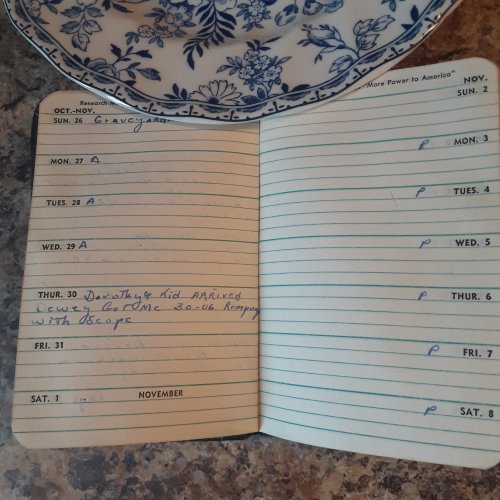 Research
OCT.-NOV.
SUN. 26 Graveyard
MON. 27 A
TUES. 28 A
WED. 29 A
THUR. 30 Dorothy & Kid ARRIVED
Dewey Got Me 30-06
with Scope
FRI. 31
SAT. 1 NOVEMBER
"More Power to America" NOV.
SUN. 2
P MON. 3
P TUES. 4
P WED. 5
P THUR. 6
P FRI. 7
P SAT. 8